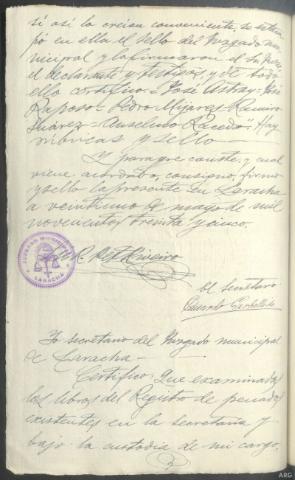 si así lo creían conveniente, se estam-
pó en ella el sello del Juzgado mu-
nicipal y la firmaron el Sr. Juez
el declarante y testigos, y de todo
ello certifico = José Astray = José
Raposo = Pedro Mijares = Ramiro
Suárez = Anselmo Ramos = Hay
rúbricas y sello
Y para que conste, y cual
viene acordado, consigno, firmo
y sello la presente en Laracha
a veintiuno de mayo de mil
novecientos treinta y cinco.
JUZGADO MUNICIPAL
LARACHA
El secretario
Yo secretario del Juzgado municipal
de Laracha =
Certifico: Que examinados
los libros del Registro de penados
existentes en la secretaría y
bajo la custodia de mi cargo,
ARG